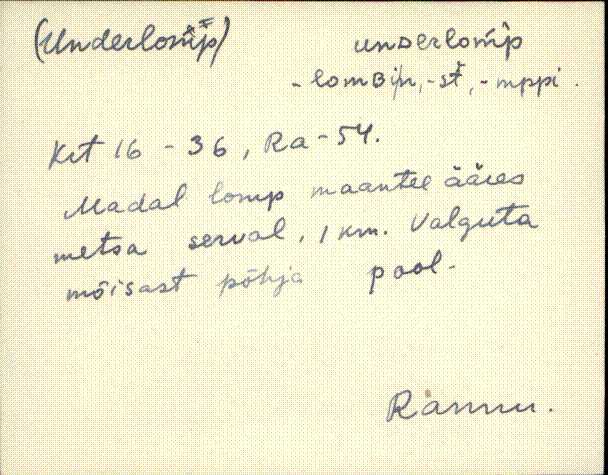 (Underlomp) underlomp
-lombin, -st, -mppi.
Krt 16 - 36, Ra - 54.
Madal lomp maantee ääres
metsa serval, 1 km. Valguta
mõisast põhja pool.
Rannu.